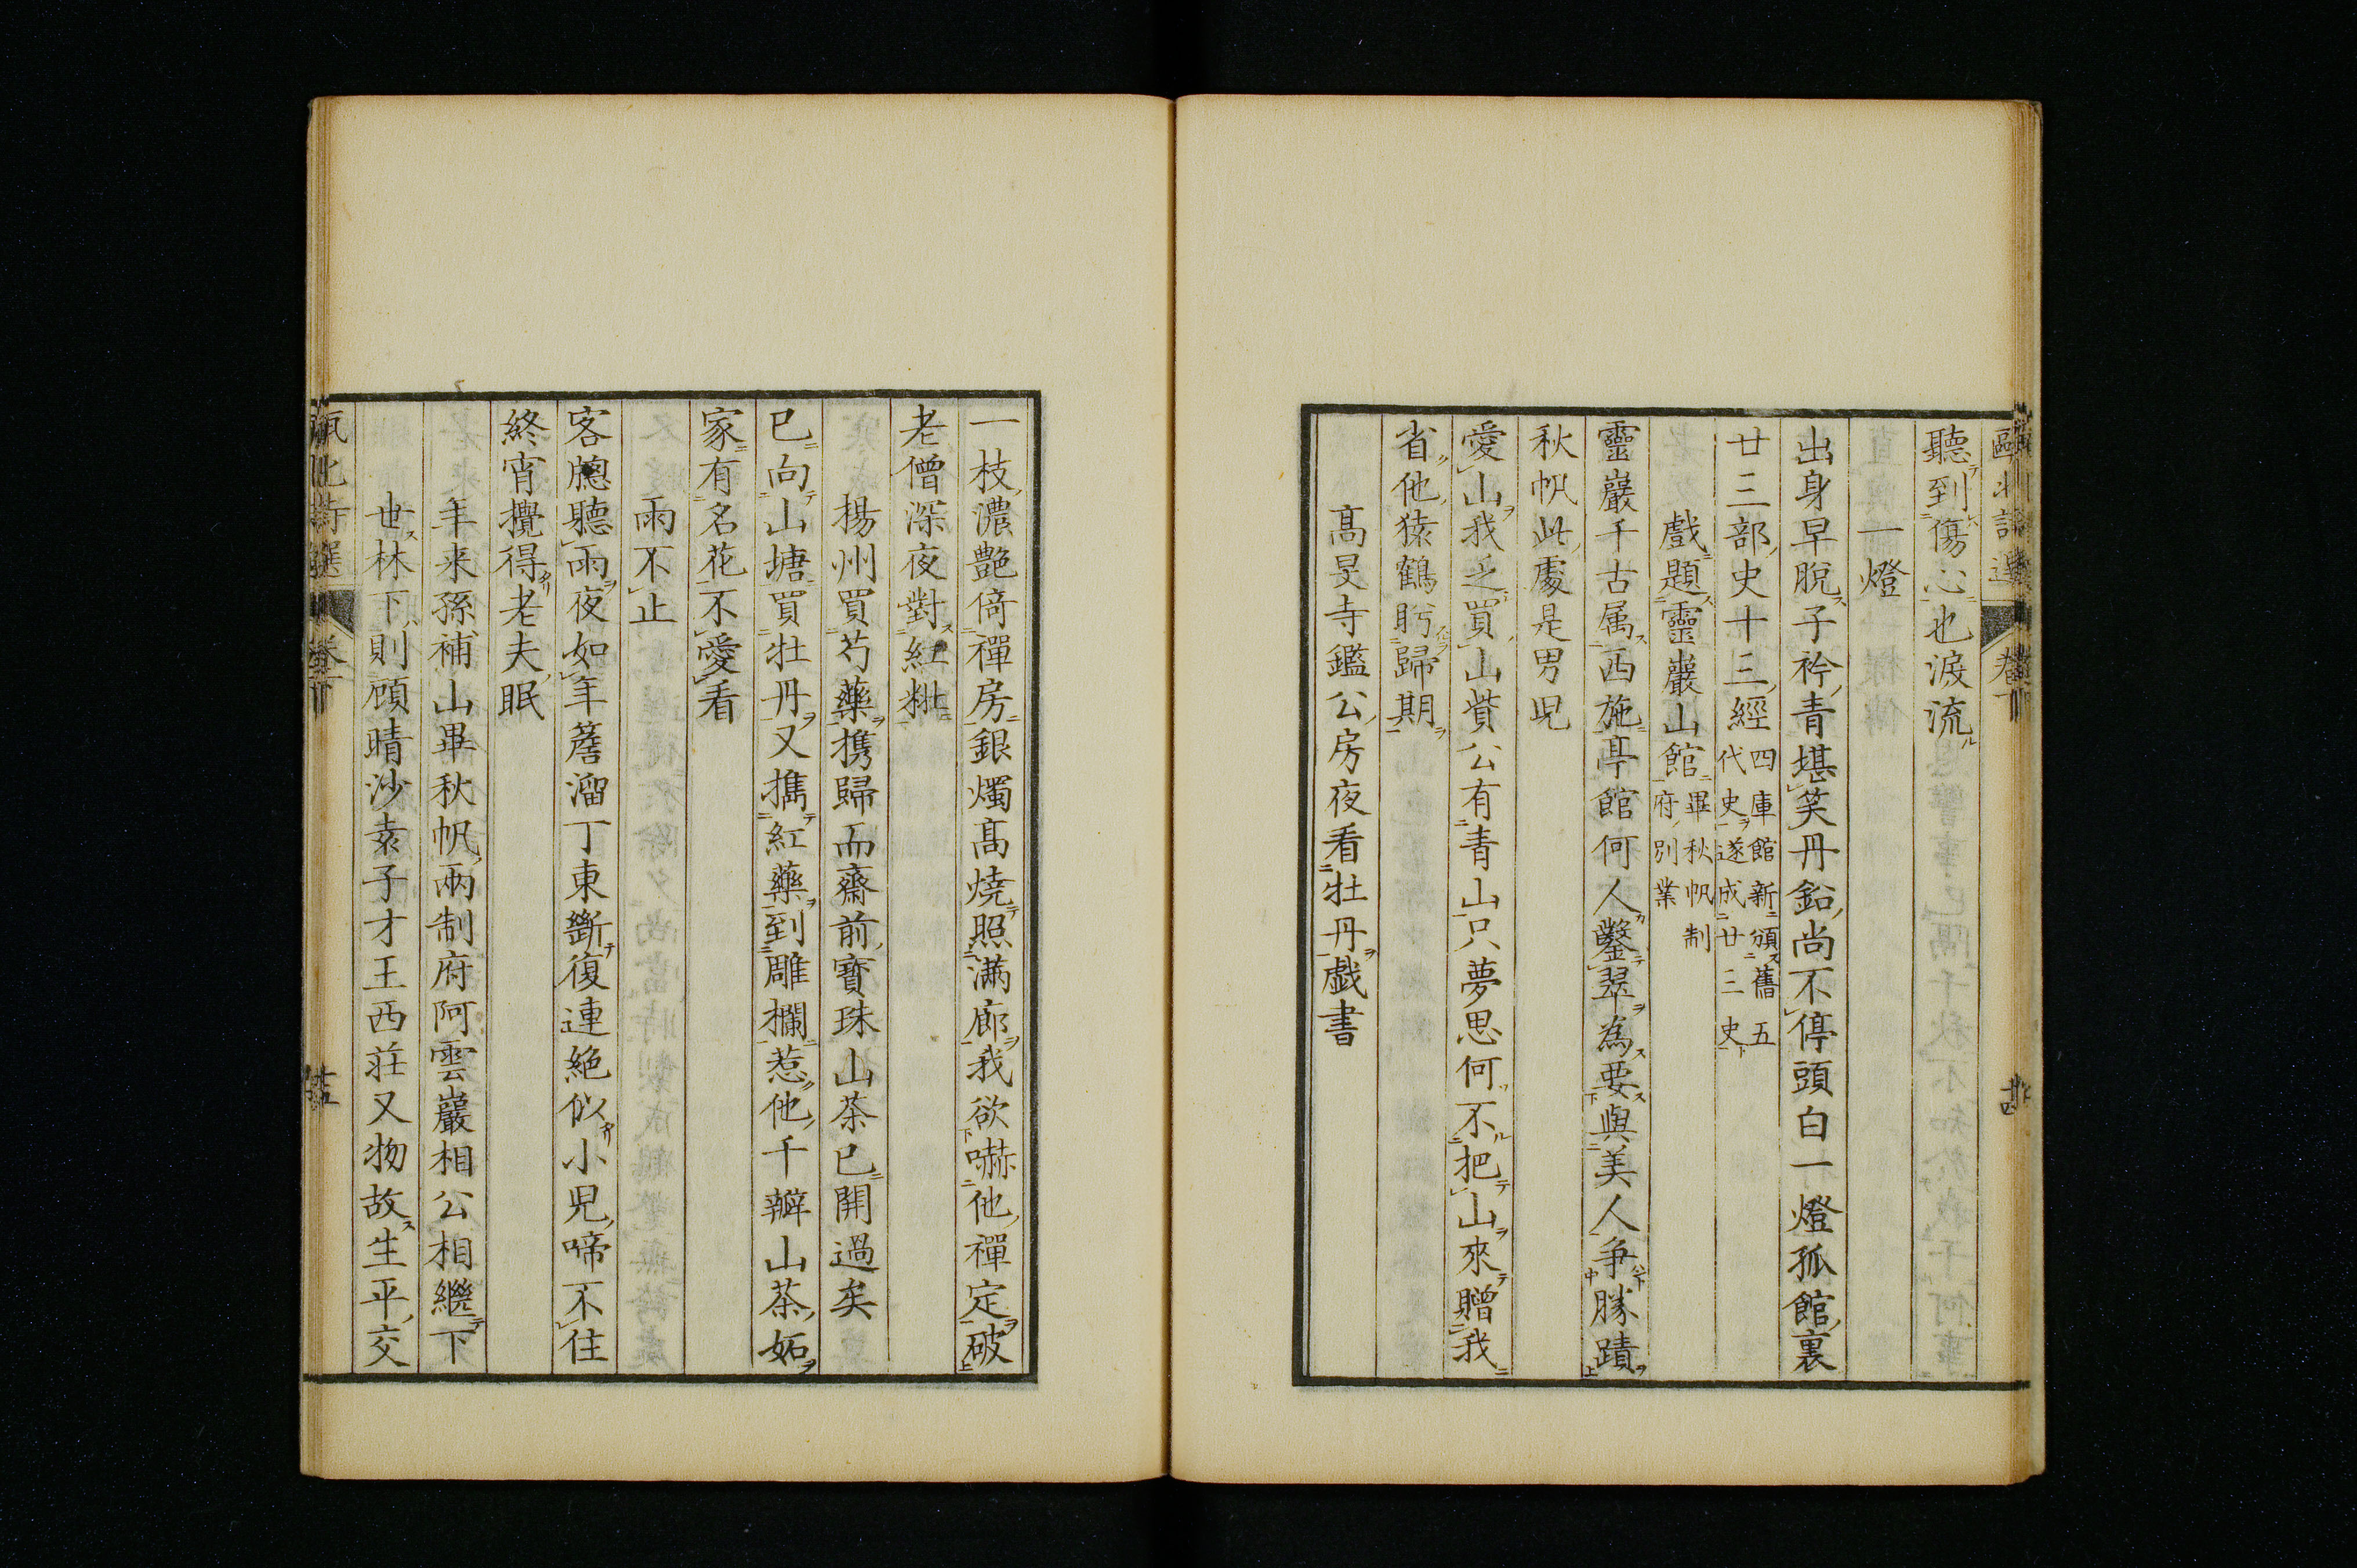 聽到傷心也淚流
一燈
出身早脫子衿青堪笑丹鉛尚不停頭白一燈孤館裏
廿三部史十三經四庫館新頒舊五
代史遂成廿三史
戲題靈巖山館畢秋帆制
府別業
靈巖千古属西施亭館何人鑿翠為要與美人爭勝蹟
秋帆此處是男兒
愛山我乏買山貲公有青山只夢思何不把山來贈我
省他猿鶴盻歸期
高旻寺鑑公房夜看牡丹戯書
一枝濃艶倚禪房銀燭高燒照滿廊我欲嚇他禪定破
老僧深夜對紅粧
楊州買芍藥携歸而齋前寶珠山茶已開過矣
已向山塘買牡丹又擕紅藥到雕欄惹他千瓣山茶妬
家有名花不愛看
雨不止
客牕聽雨夜如年簷溜丁東斷復連絕似小兒啼不住
終宵攪得老夫眠
年来孫補山畢秋帆兩制府阿雲巖相公相繼下
世林下則顧晴沙袁子才王西莊又物故生平交
甌北詩選
卷下